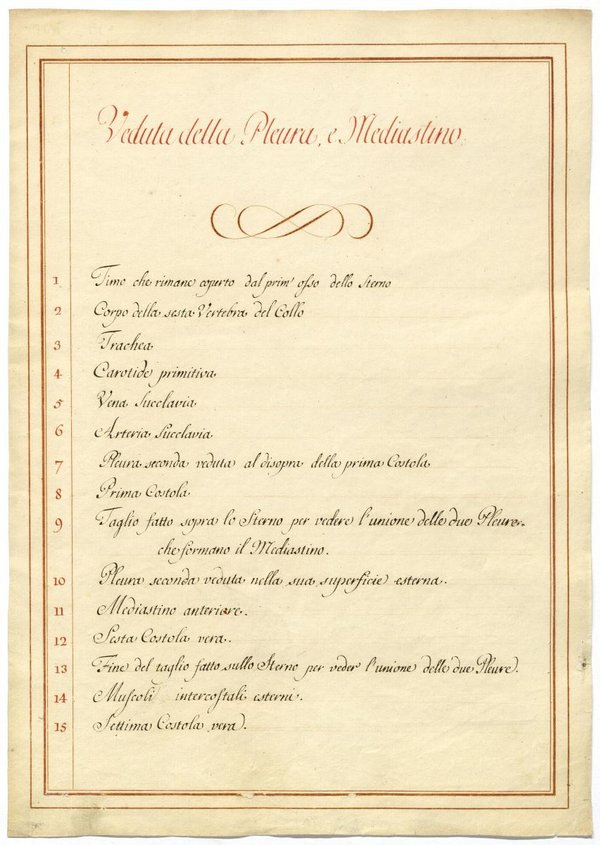 Veduta della Pleura, e Mediastino.
1 Timo che rimane coperto dal prim' osso dello Sterno
2 Corpo della sesta Vertebra del Collo
3 Trachea
4 Carotide primitiva
5 Vena succlavia
6 Arteria succlavia
7 Pleura seconda veduta al disopra della prima Costola
8 Prima Costola
9 Taglio fatto sopra lo Sterno per vedere l'unione delle due Pleure
che formano il Mediastino.
10 Pleura seconda veduta nella sua superficie esterna.
11 Mediastino anteriore.
12 Sesta Costola vera.
13 Fine del taglio fatto sullo Sterno per veder l'unione delle due Pleure.
14 Muscoli intercostali esterni.
15 Settima Costola vera.